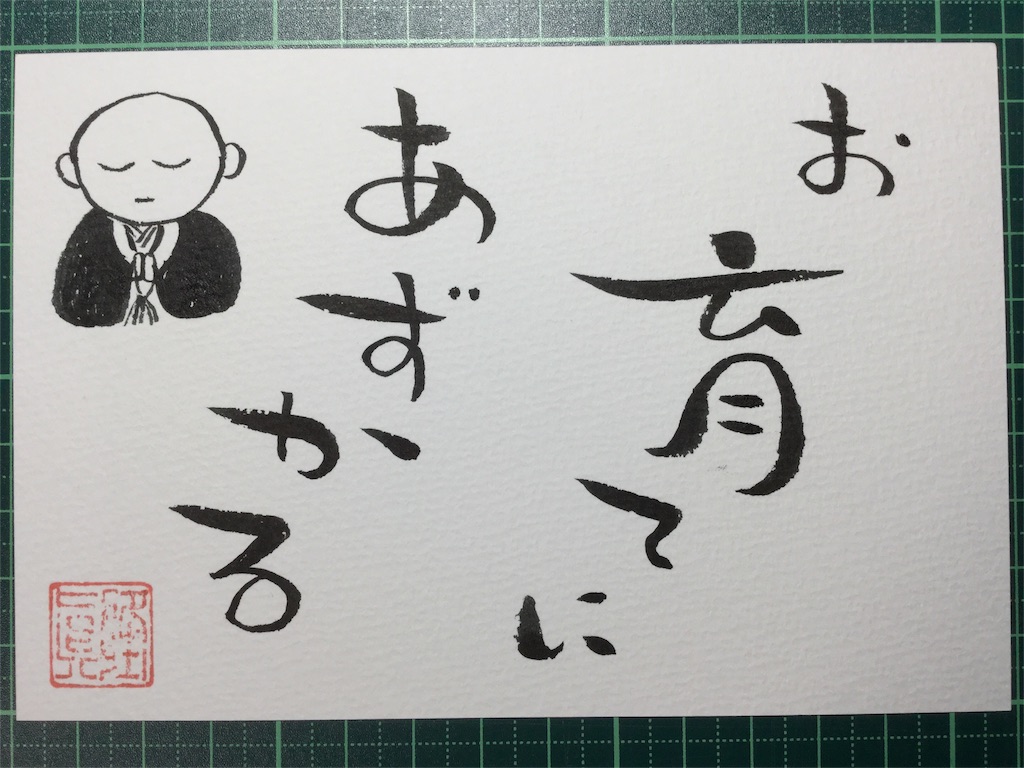 お育てに
あずかる